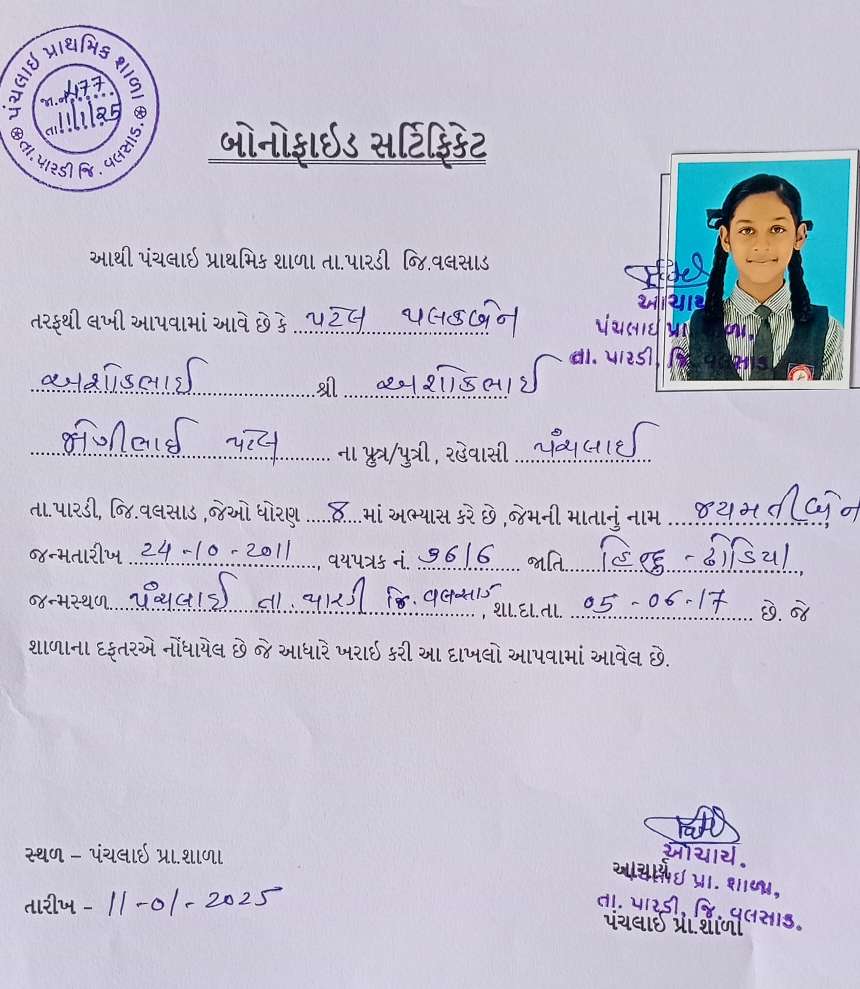 પંચલાઇ પ્રાથમિક શાળા
જા.નં. 477
તા. 11/1/25
તા. પારડી જિ. વલસાડ.
બોનોફાઇડ સર્ટિફિકેટ
આથી પંચલાઇ પ્રાથમિક શાળા તા.પારડી જિ.વલસાડ
તરફથી લખી આપવામાં આવે છે કે પટેલ પલકબેન
અશોકભાઈ શ્રી અશોકભાઈ
પટેલ ના પુત્ર/પુત્રી, રહેવાસી પંચલાઈ
તા.પારડી, જિ.વલસાડ ,જેઓ ધોરણ 8 માં અભ્યાસ કરે છે ,જેમની માતાનું નામ જયમતીબેન
જન્મતારીખ 24-10-2011, વયપત્રક નં. 1616 જાતિ હિન્દુ - ઢોડિયા,
જન્મસ્થળ પંચલાઈ તા. પારડી જિ. વલસાડ, શા.દા.તા. 05-06-17 છે. જે
શાળાના દફતરએ નોંધાયેલ છે જે આધારે ખરાઇ કરી આ દાખલો આપવામાં આવેલ છે.
આચાર્ય
પંચલાઇ પ્રા. શાળા,
તા. પારડી, જિ. વલસાડ.
સ્થળ – પંચલાઇ પ્રા.શાળા
તારીખ – 11-01-2025
આચાર્ય.
પંચલાઇ પ્રા. શાળા,
તા. પારડી, જિ. વલસાડ.
આચાર્ય
પંચલાઇ પ્રા.શાળા